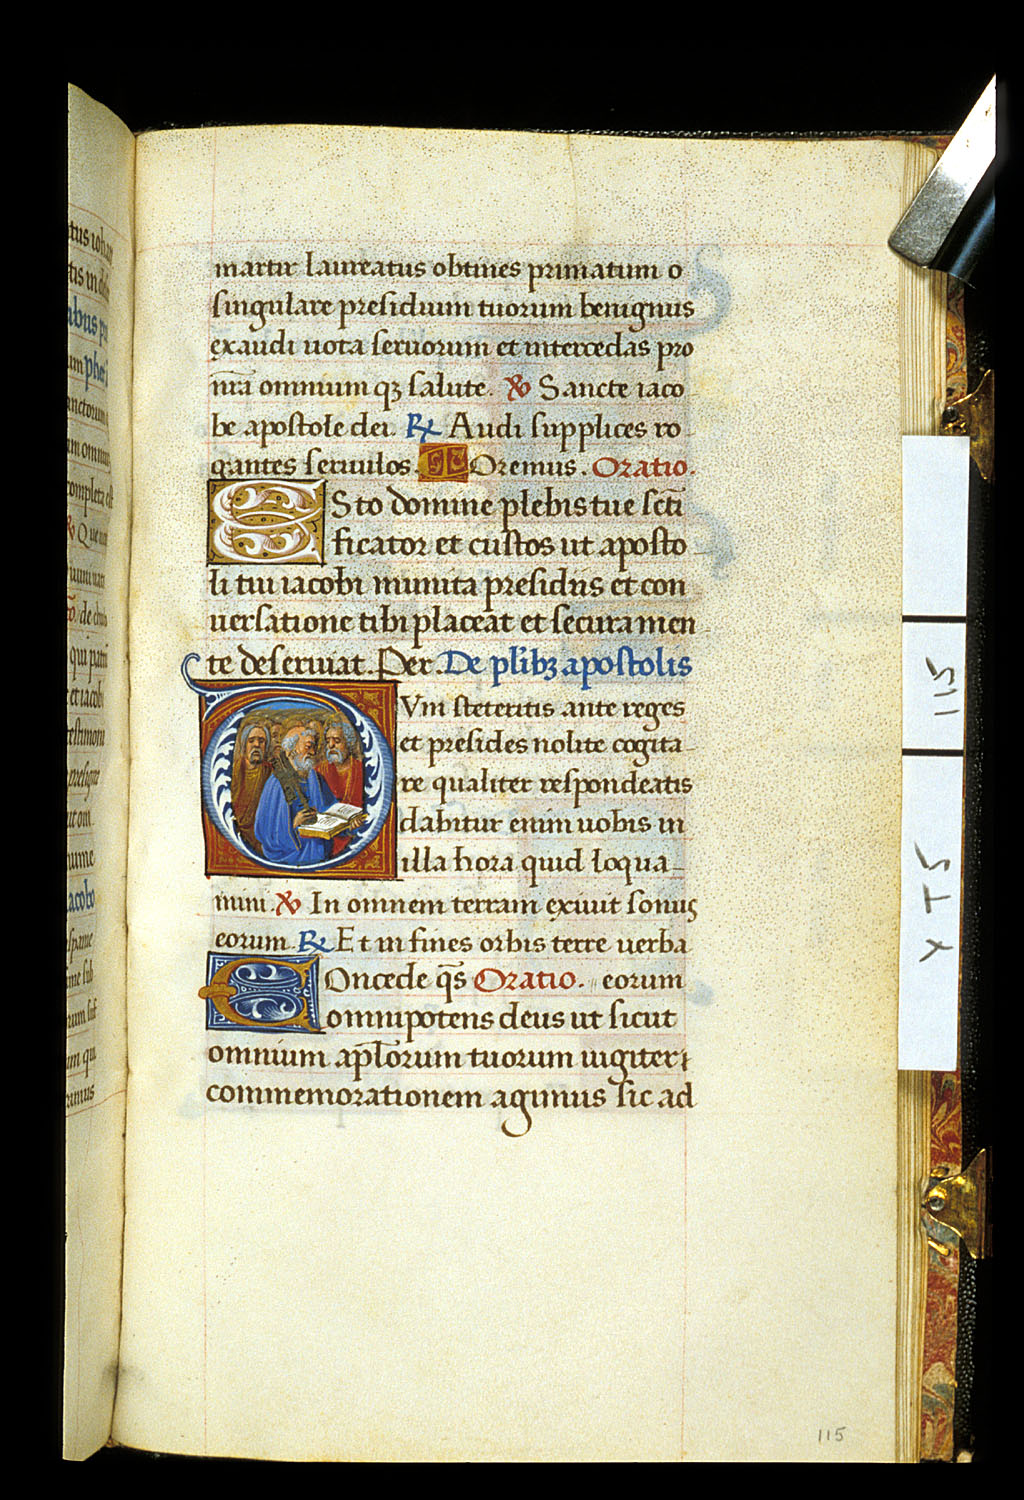 martir laureatus obtines primatum o
singulare presidium tuorum benignus
exaudi uota seruorum et intercedas pro
nr̄a omnium qꝫ salute. ℣ Sancte iaco
be apostole dei. ℟ Audi supplices ro
gantes seruulos. Oremus. Oratio.
ESto domine plebis tue sc̄ti
ficator et custos ut aposto
li tui iacobi munita presidiis et con
uersatione tibi placeat et secura men
te deseruiat. Per. De pl̄ibꝫ apostolis
DVm steteritis ante reges
et presides nolite cogita
re qualiter respondeatis
dabitur enim uobis in
illa hora quid loqua
mini. ℣ In omnem terram exiuit sonus
eorum. ℟ Et in fines orbis terre uerba
COncede qs̄ Oratio. eorum
omnipotens deus ut sicut
omnium apl̄orum tuorum uigiteri
commemorationem agimus sic ad
115
115
YT5